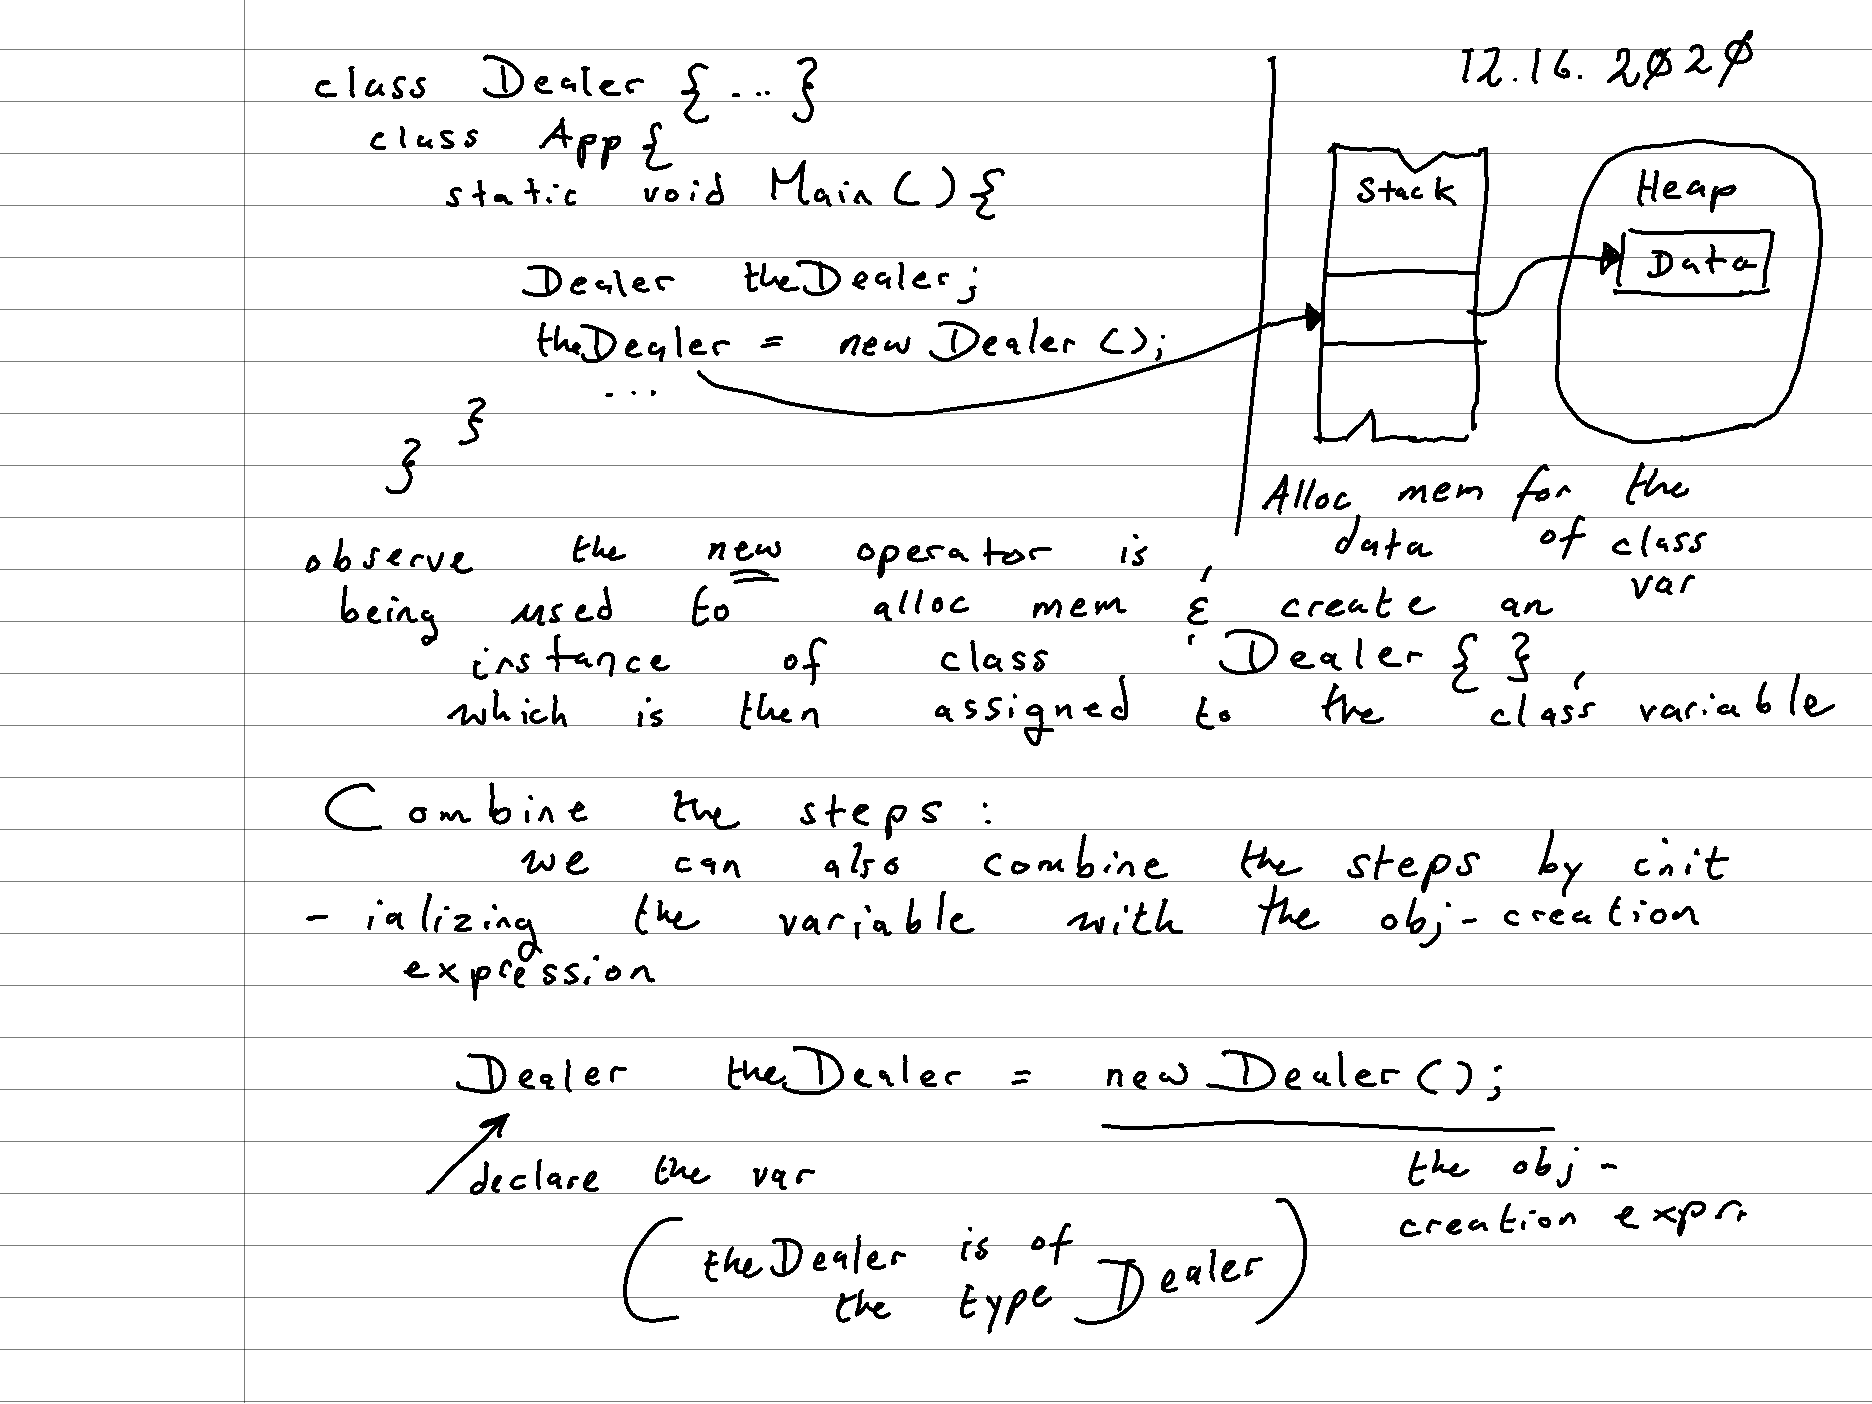 12.16.2020
class Dealer {...}
class App {
static void Main () {
Dealer theDealer;
theDealer = new Dealer ();
...
}
}
Stack
Heap
Data
Alloc mem for the
data of class
var
observe the new operator is
being used to alloc mem & create an
instance of class Dealer { },
which is then assigned to the class variable
Combine the steps :
we can also combine the steps by init
- ializing the variable with the obj-creation
expression
Dealer theDealer = new Dealer ();
declare the var
(theDealer is of
the type Dealer)
the obj -
creation expr.